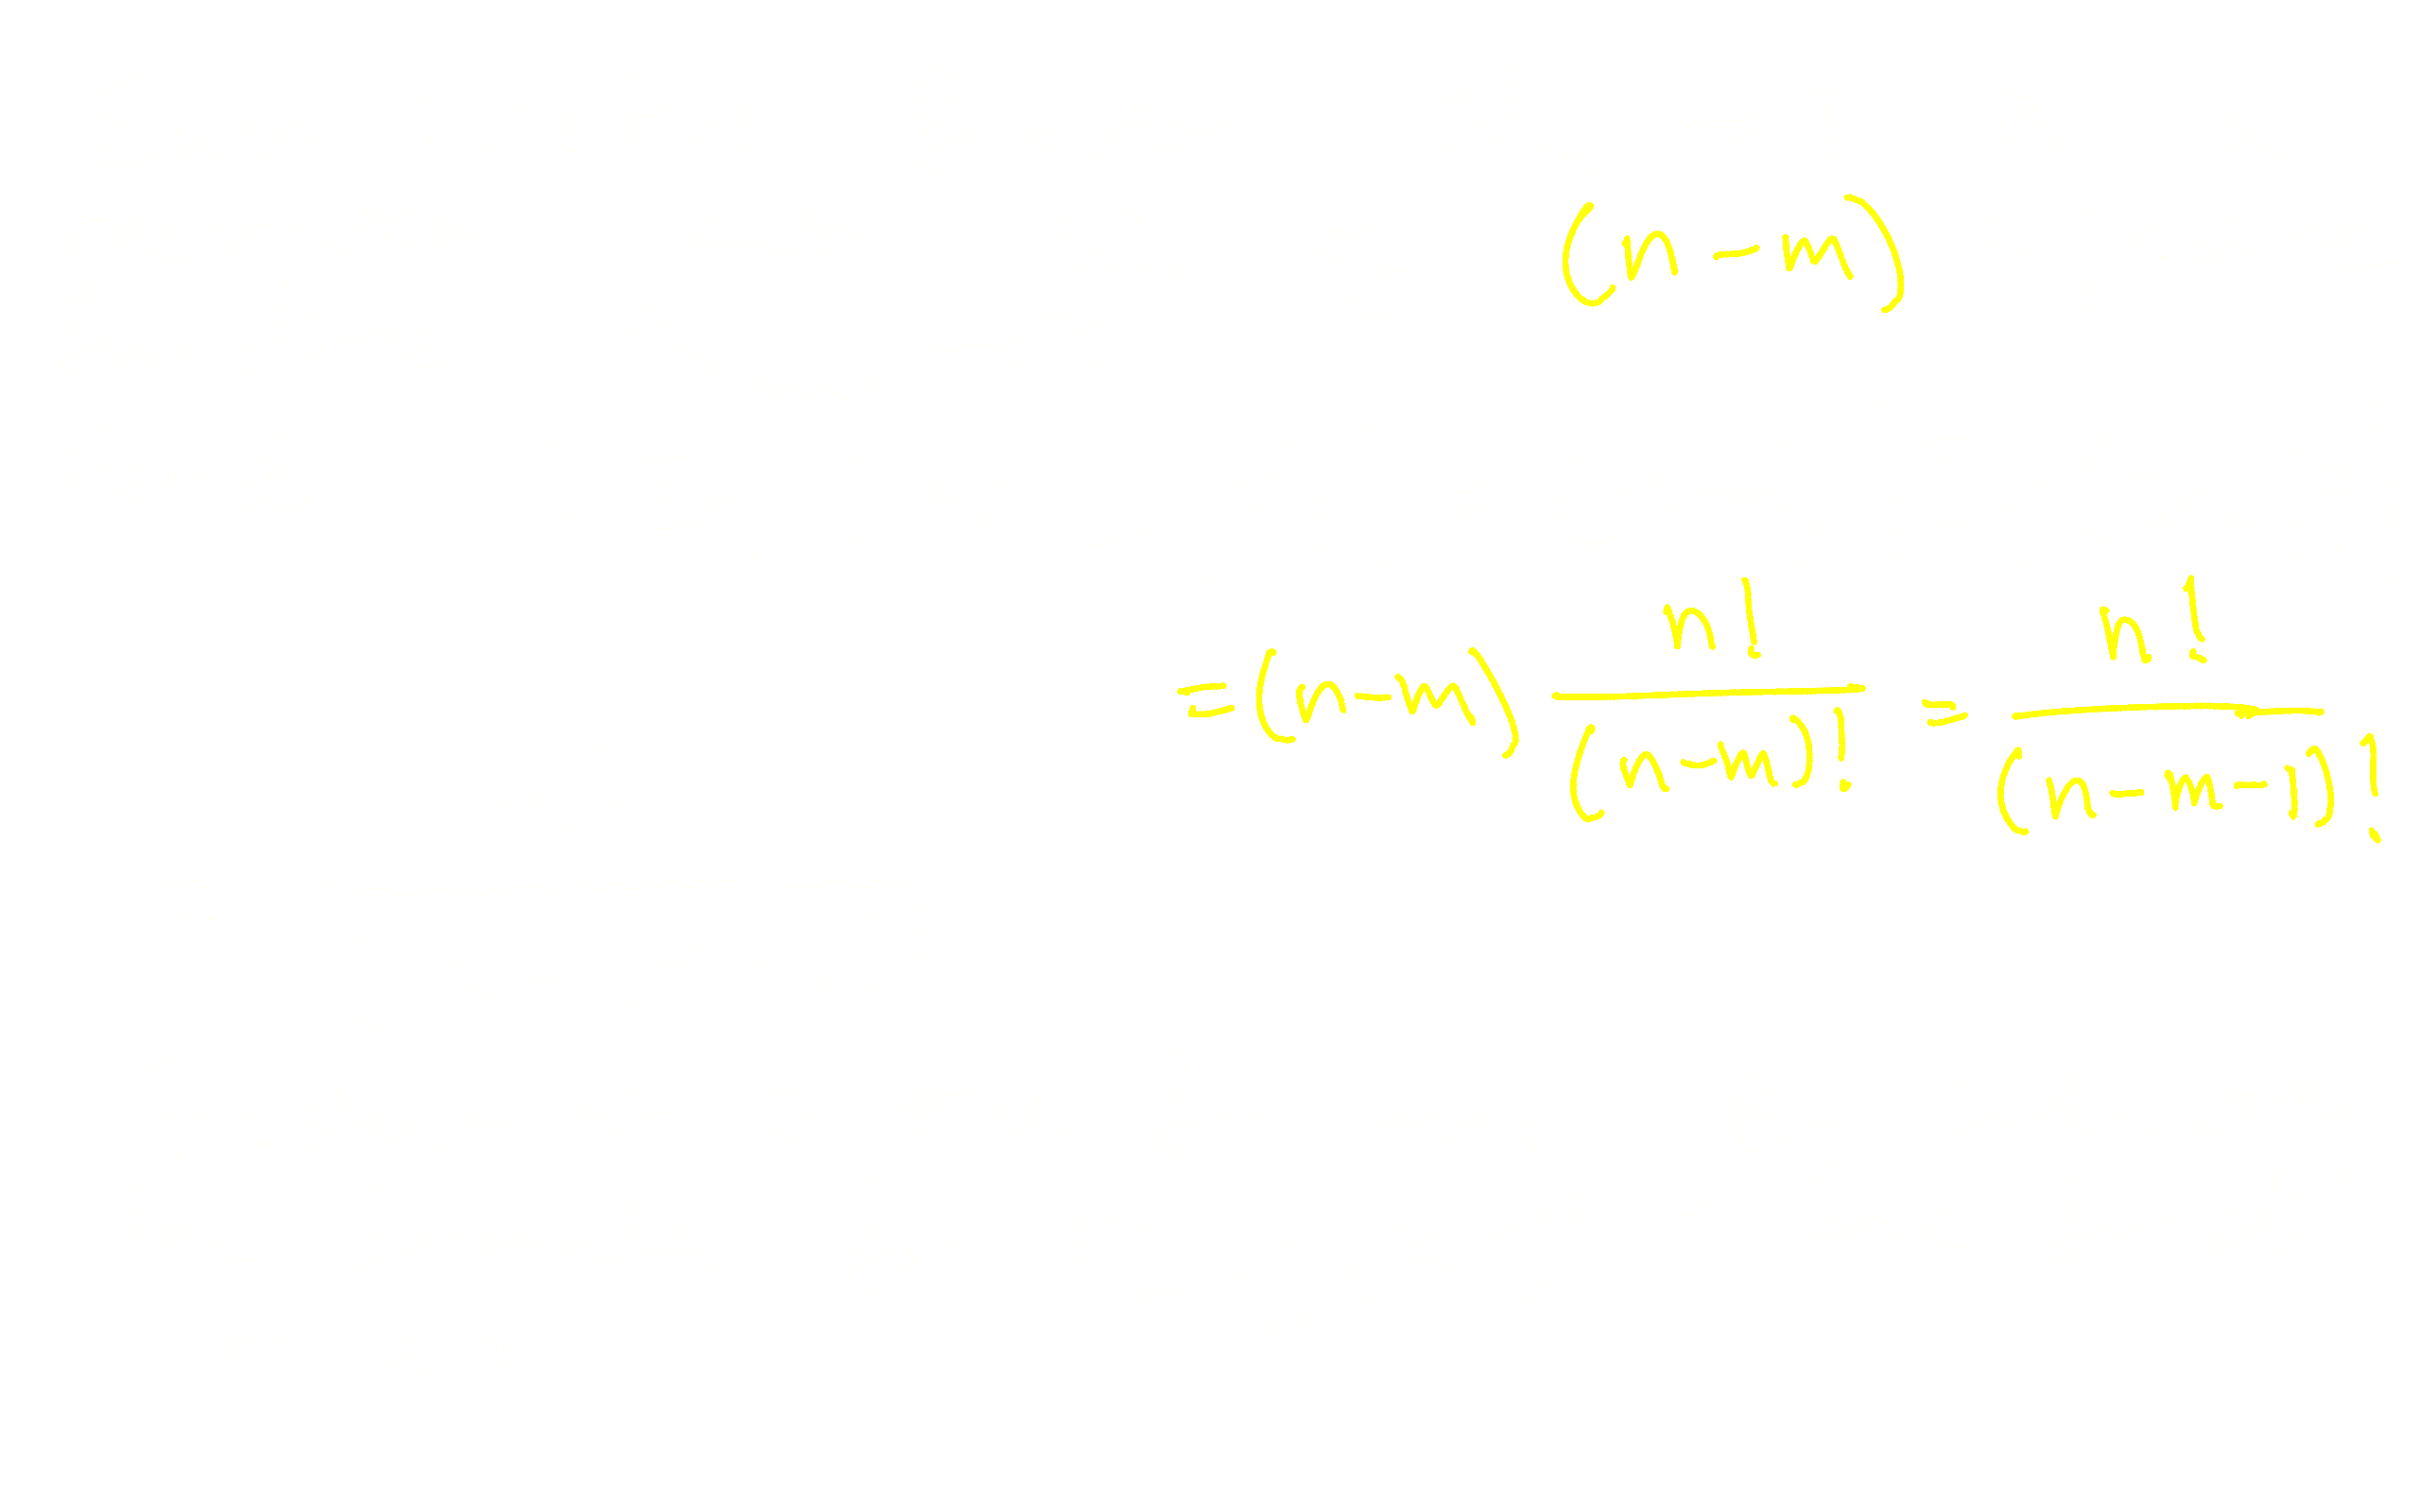 (n-m)
=(n-m) \frac{n!}{(n-m)!} = \frac{n!}{(n-m-1)!}